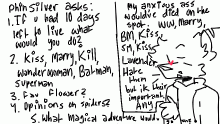 Phinsilver asks:
1. If u had 10 days
left to live what
would you do?
2. Kiss, Marry, Kill,
wonderwoman, Batman,
Superman
3. Fav Flower?
4. Opinions on spiders?
5. What magical adventure would
my anxious ass
wouldve died on the
spot. WW, Marry,
BM, Kiss,
SM, Kiss,
Lavender
Hate
them
but ik their
important.
Any